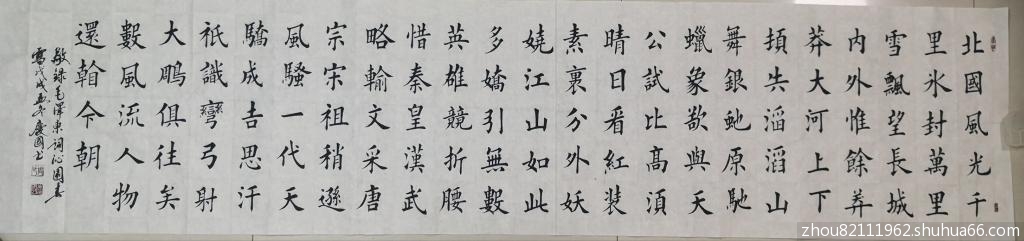 北國風光千
里氷封萬里
雪飄望長城
内外惟餘莽
莽大河上下
頓失滔滔山
舞銀虵原馳
蠟象欲與天
公試比高須
晴日看紅裝
素裹分外妖
嬈江山如此
多嬌引無數
英雄競折腰
惜秦皇漢武
略輸文采唐
宗宋祖稍遜
風騷一代天
驕成吉思汗
祇識彎弓射
大鵰俱往矣
數風流人物
還看今朝
敬録毛澤東詞沁園春
雪戊戌
zhou82111962.shuhua66.com